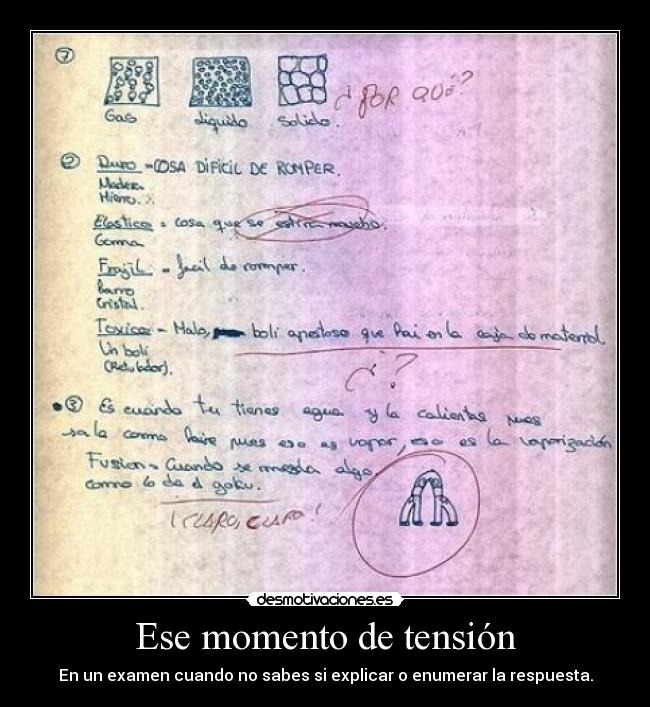 1
Gas Liquido Solido.
¿POR QUÉ?
2 Duro = COSA DIFICIL DE ROMPER.
Madera
Hierro.
Elastico = cosa que se estira mucho.
Goma
Frajil = facil de romper.
Barro
Cristal.
Toxico = Malo, boli apestoso que hai en la caja de material
Un boli
(Rotulador).
¿?
3 Es cuando tu tienes agua y la calientas pues
sale como haire pues eso es vapor, eso es la vaporización
Fusion = Cuando se mezcla algo
como lo de el goku.
¡CLARO, CLARO!
desmotivaciones.es
Ese momento de tensión
En un examen cuando no sabes si explicar o enumerar la respuesta.